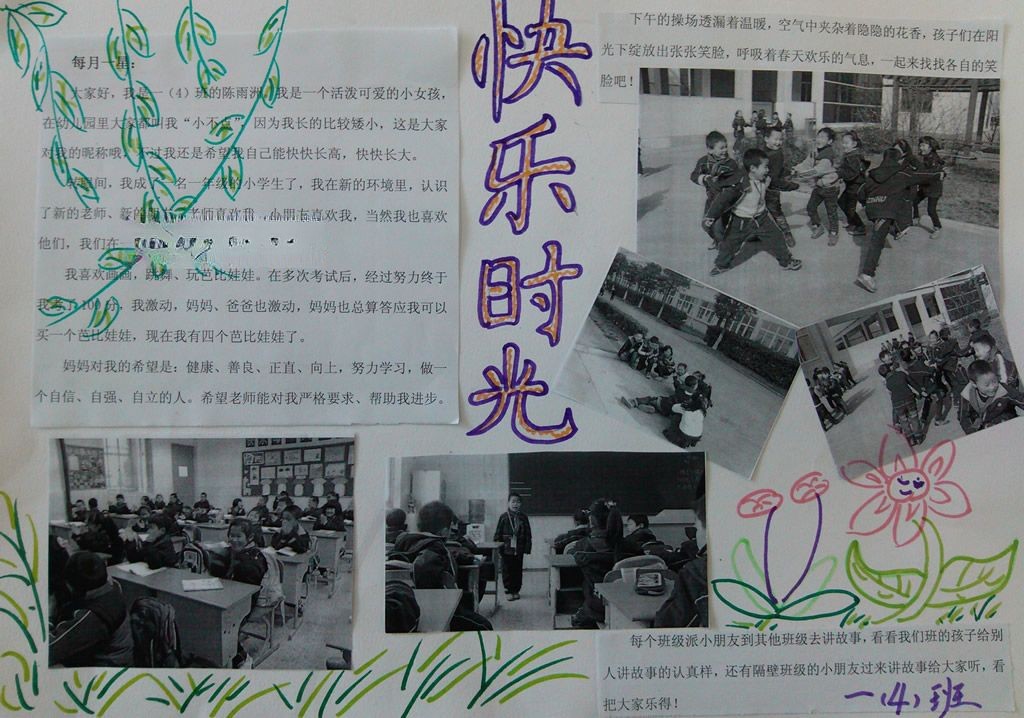 每月一星：
大家好，我是一（4）班的陈雨洲，我是一个活泼可爱的小女孩，
在幼儿园里大家都叫我“小不点”，因为我长的比较矮小，这是大家
对我的昵称哦，不过我还是希望我自己能快快长高，快快长大。
转眼间，我成了一名一年级的小学生了，我在新的环境里，认识
了新的老师、新的 老师喜欢我，小朋友喜欢我，当然我也喜欢
他们，我们在一
我喜欢画画，跳舞、玩芭比娃娃。在多次考试后，经过努力终于
我考了100分，我激动，妈妈、爸爸也激动，妈妈也总算答应我可以
买一个芭比娃娃，现在我有四个芭比娃娃了。
妈妈对我的希望是：健康、善良、正直、向上，努力学习，做一
个自信、自强、自立的人。希望老师能对我严格要求、帮助我进步。
快乐时光
下午的操场透漏着温暖，空气中夹杂着隐隐的花香，孩子们在阳
光下绽放出张张笑脸，呼吸着春天欢乐的气息，一起来找找各自的笑
脸吧！
每个班级派小朋友到其他班级去讲故事，看看我们班的孩子给别
人讲故事的认真样，还有隔壁班级的小朋友过来讲故事给大家听，看
把大家乐得！
一（4）班